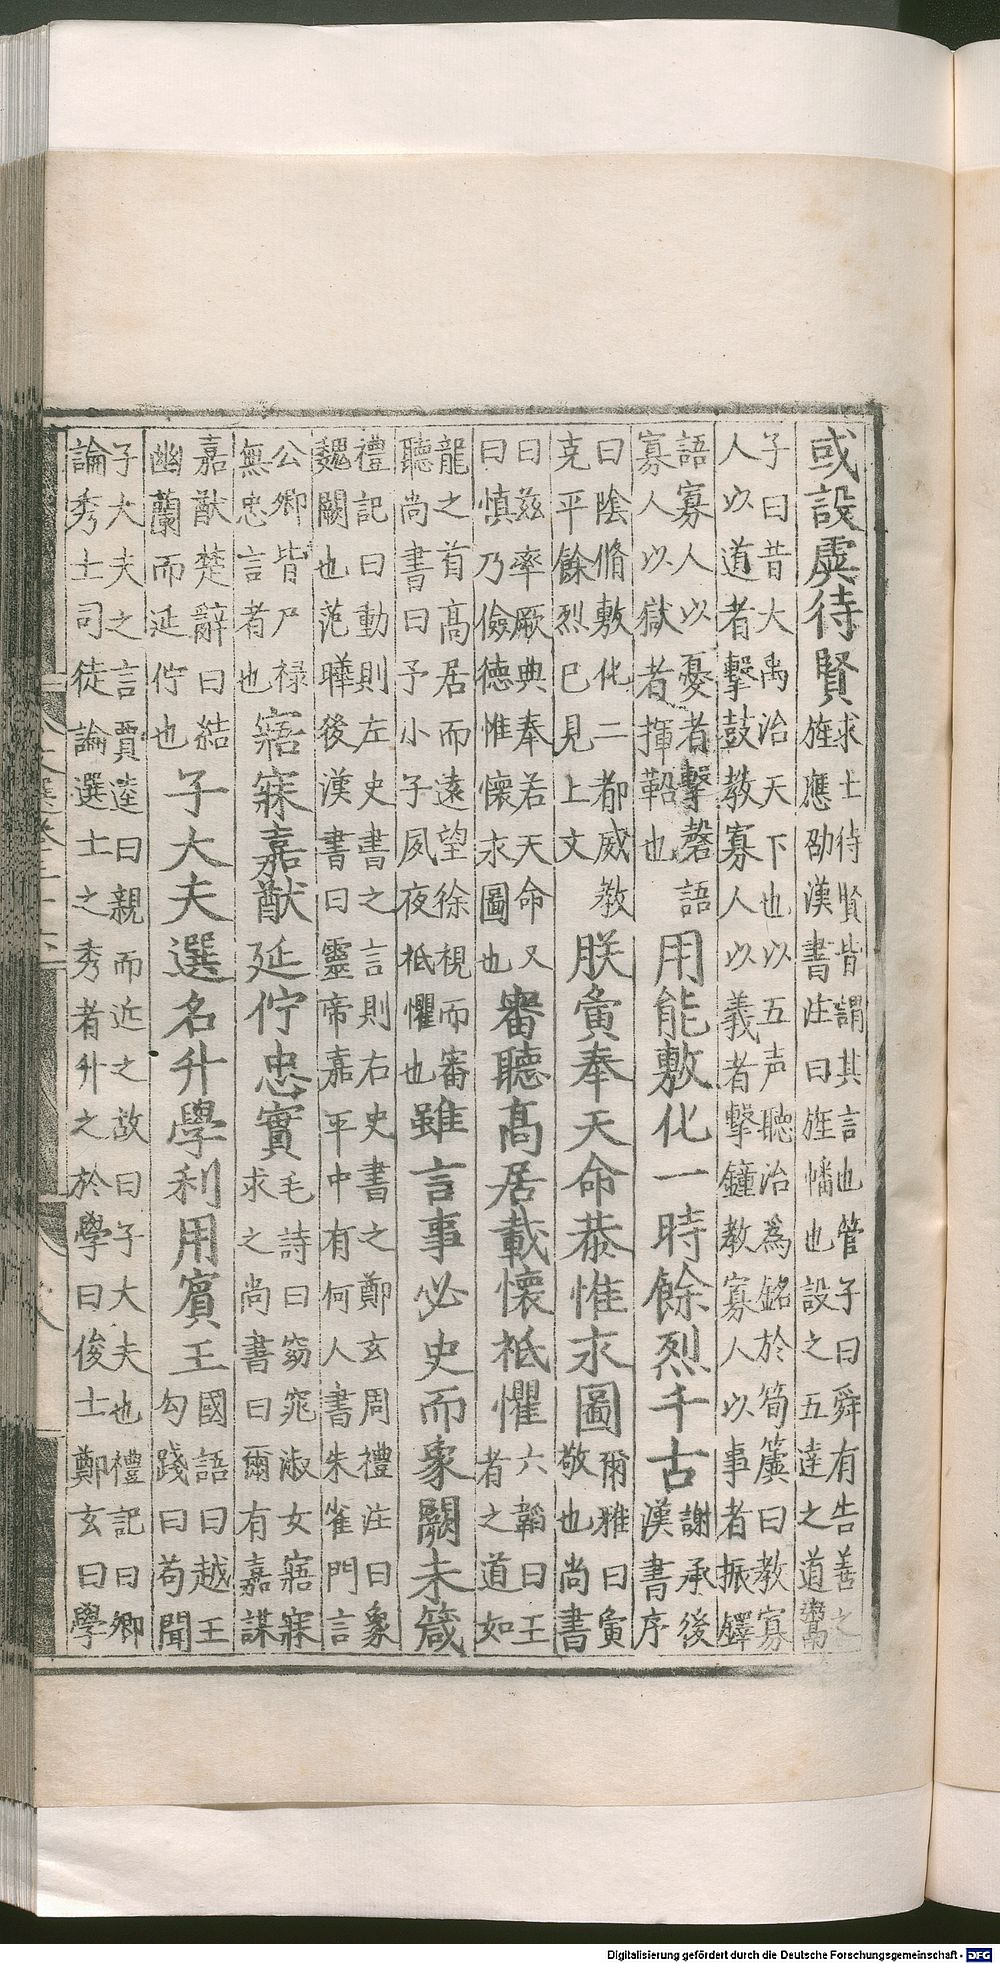 或設虡待賢
求士待賢皆謂其言也管子曰舜有告善之
旌應劭漢書注曰旌幡也設之五達之道鬻
子曰昔大禹治天下也以五声聽治為銘於筍簴曰教寡
人以道者擊鼓教寡人以義者擊鐘教寡人以事者振鐸
語寡人以憂者擊磬語
寡人以獄者揮鞀也
用能敷化一時餘烈千古
謝承後
漢書序
曰陰脩敷化二都威教
克平餘烈已見上文
朕夤奉天命恭惟求圖
爾雅曰夤
敬也尚書
曰兹率厥典奉若天命又
曰慎乃儉德惟懷求圖也
審聽高居載懷祗懼
六韜曰王
者之道如
龍之首高居而遠望徐視而審
聽尚書曰予小子夙夜祗懼也
雖言事必史而象闕未箴
禮記曰動則左史書之言則右史書之鄭玄周禮注曰象
魏闕也范曄後漢書曰靈帝嘉平中有何人書朱雀門言
公卿皆尸禄
無忠言者也
寤寐嘉猷延佇忠實
毛詩曰窈窕淑女寤寐
求之尚書曰爾有嘉謀
嘉猷楚辭曰結
幽蘭而延佇也
子大夫選名升學利用賓王
國語曰越王
勾踐曰苟聞
子大夫之言賈逵曰親而近之故曰子大夫也禮記曰卿
論秀士司徒論選士之秀者升之於學曰俊士鄭玄曰學
Digitalisierung gefördert durch die Deutsche Forschungsgemeinschaft - DFG